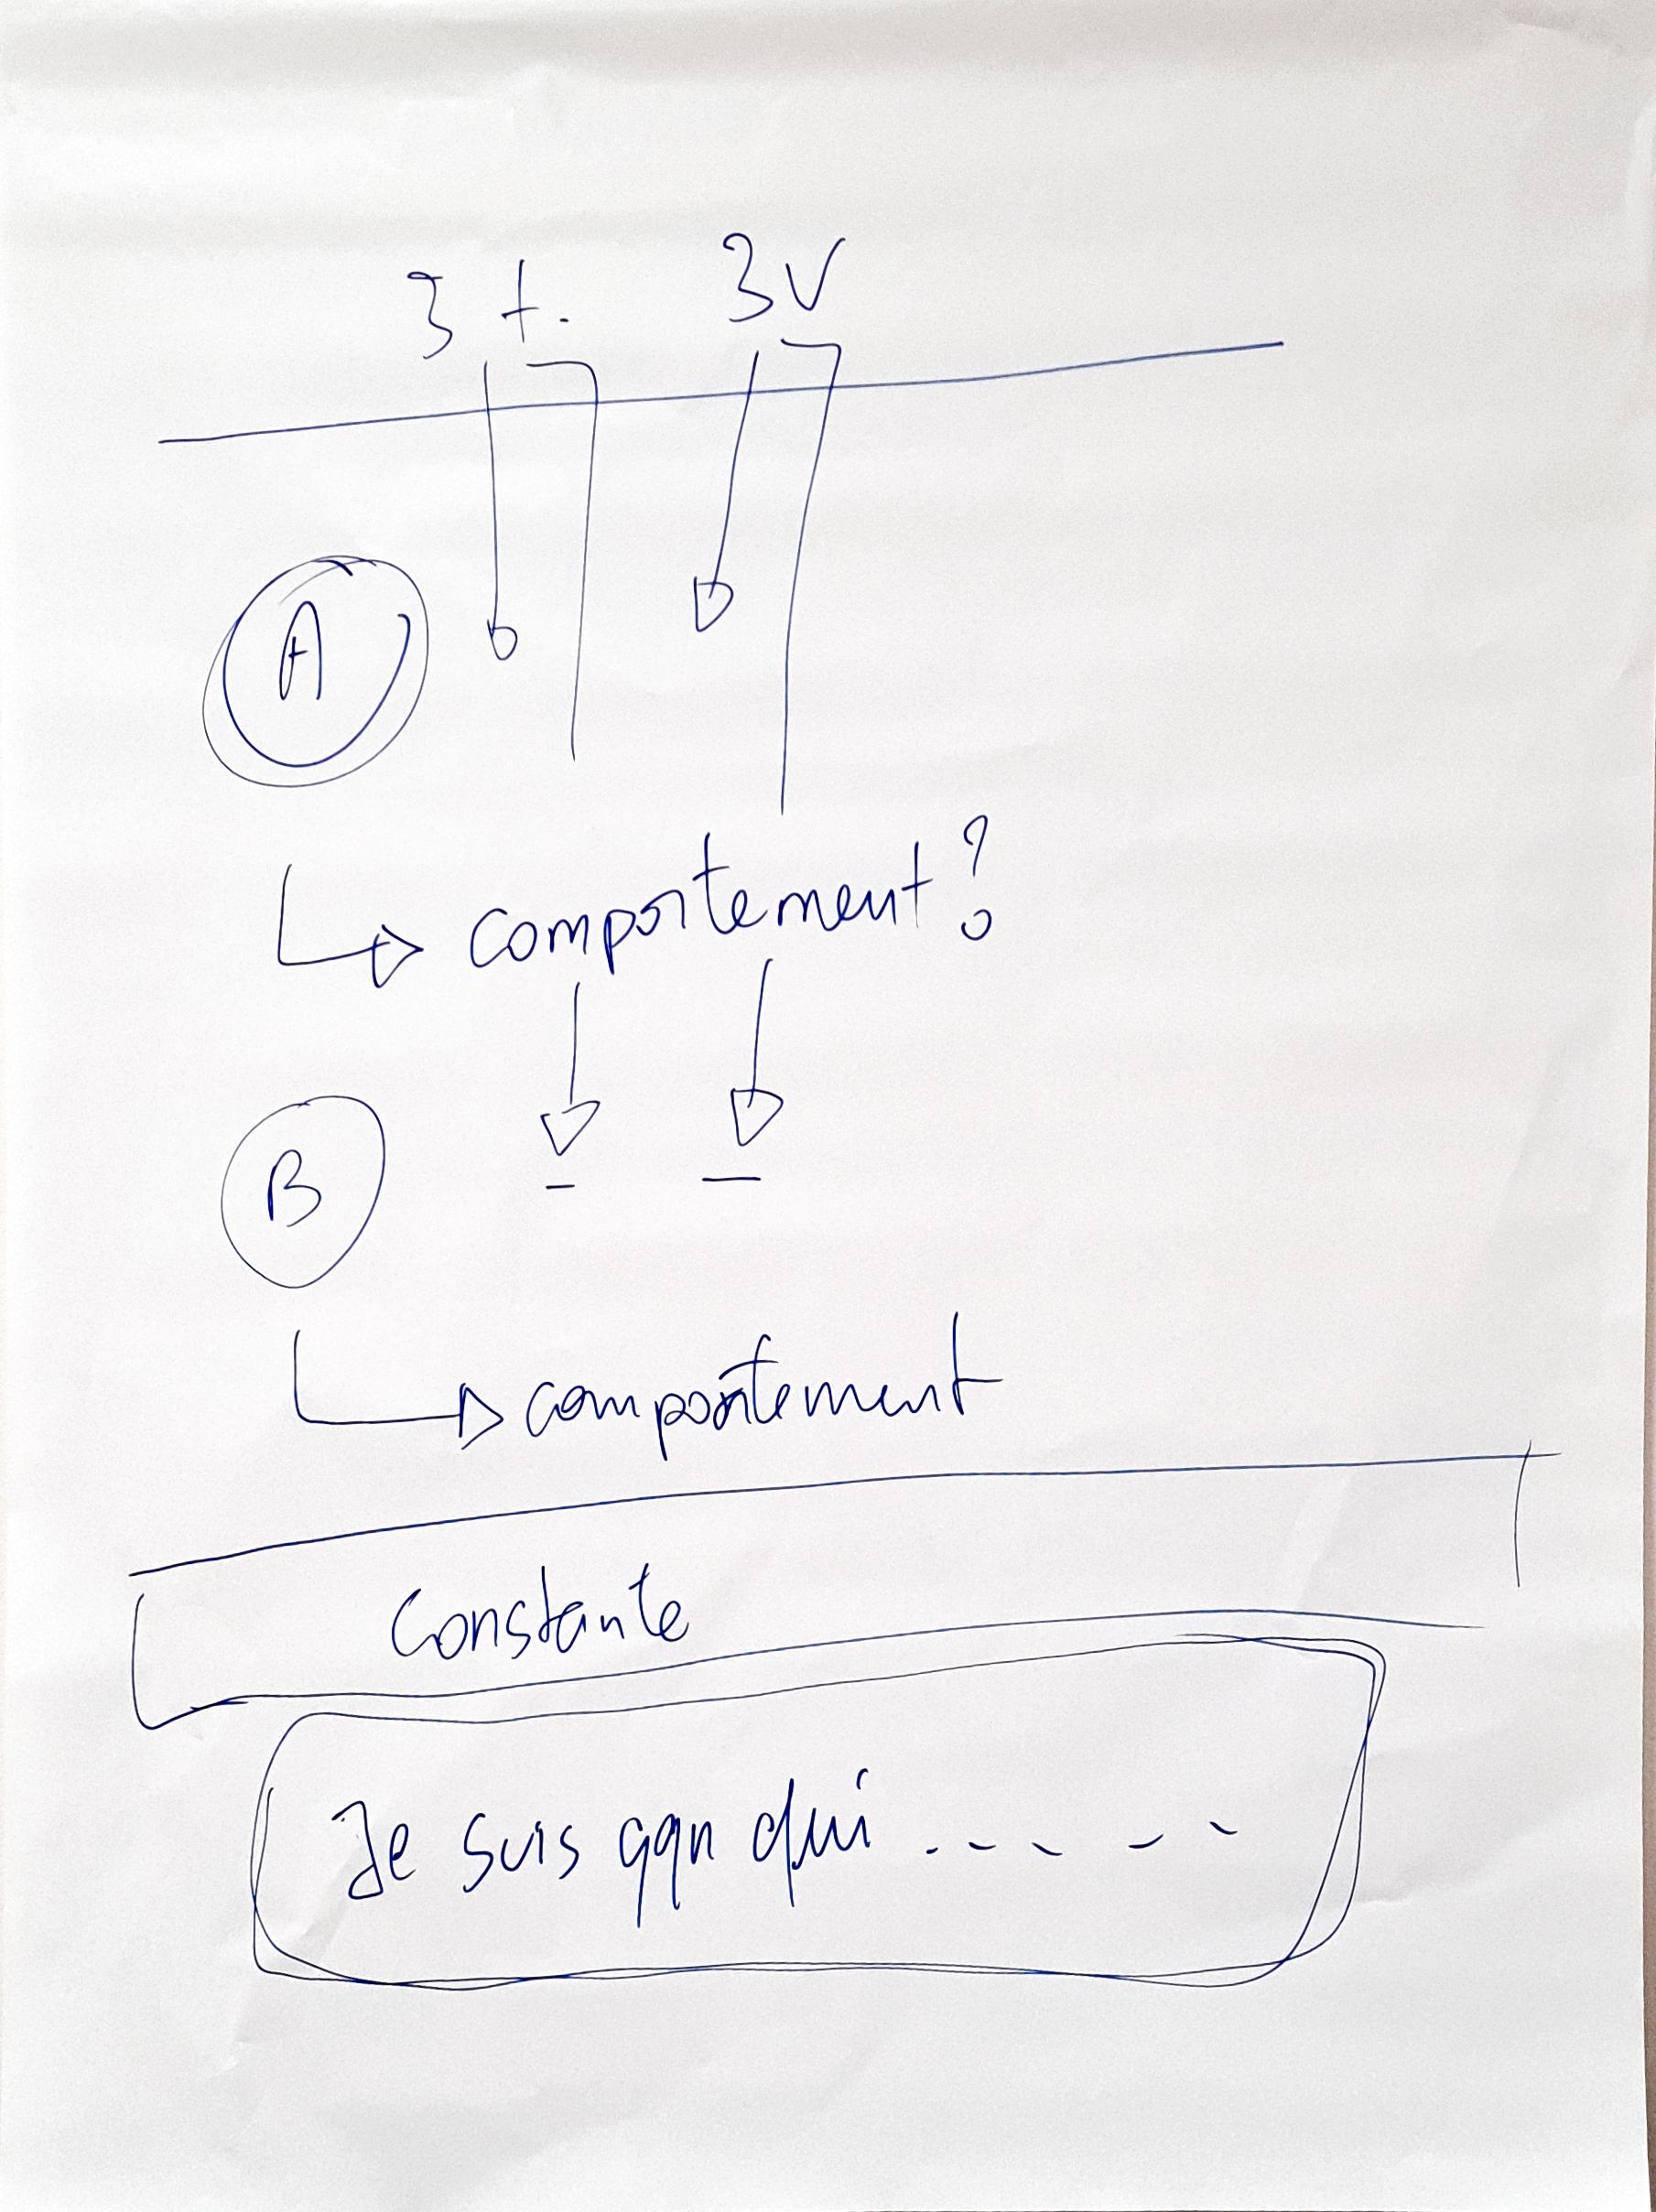 3 t. 3V
A
comportement?
B
comportement
Constante
Je suis qqn qui .....